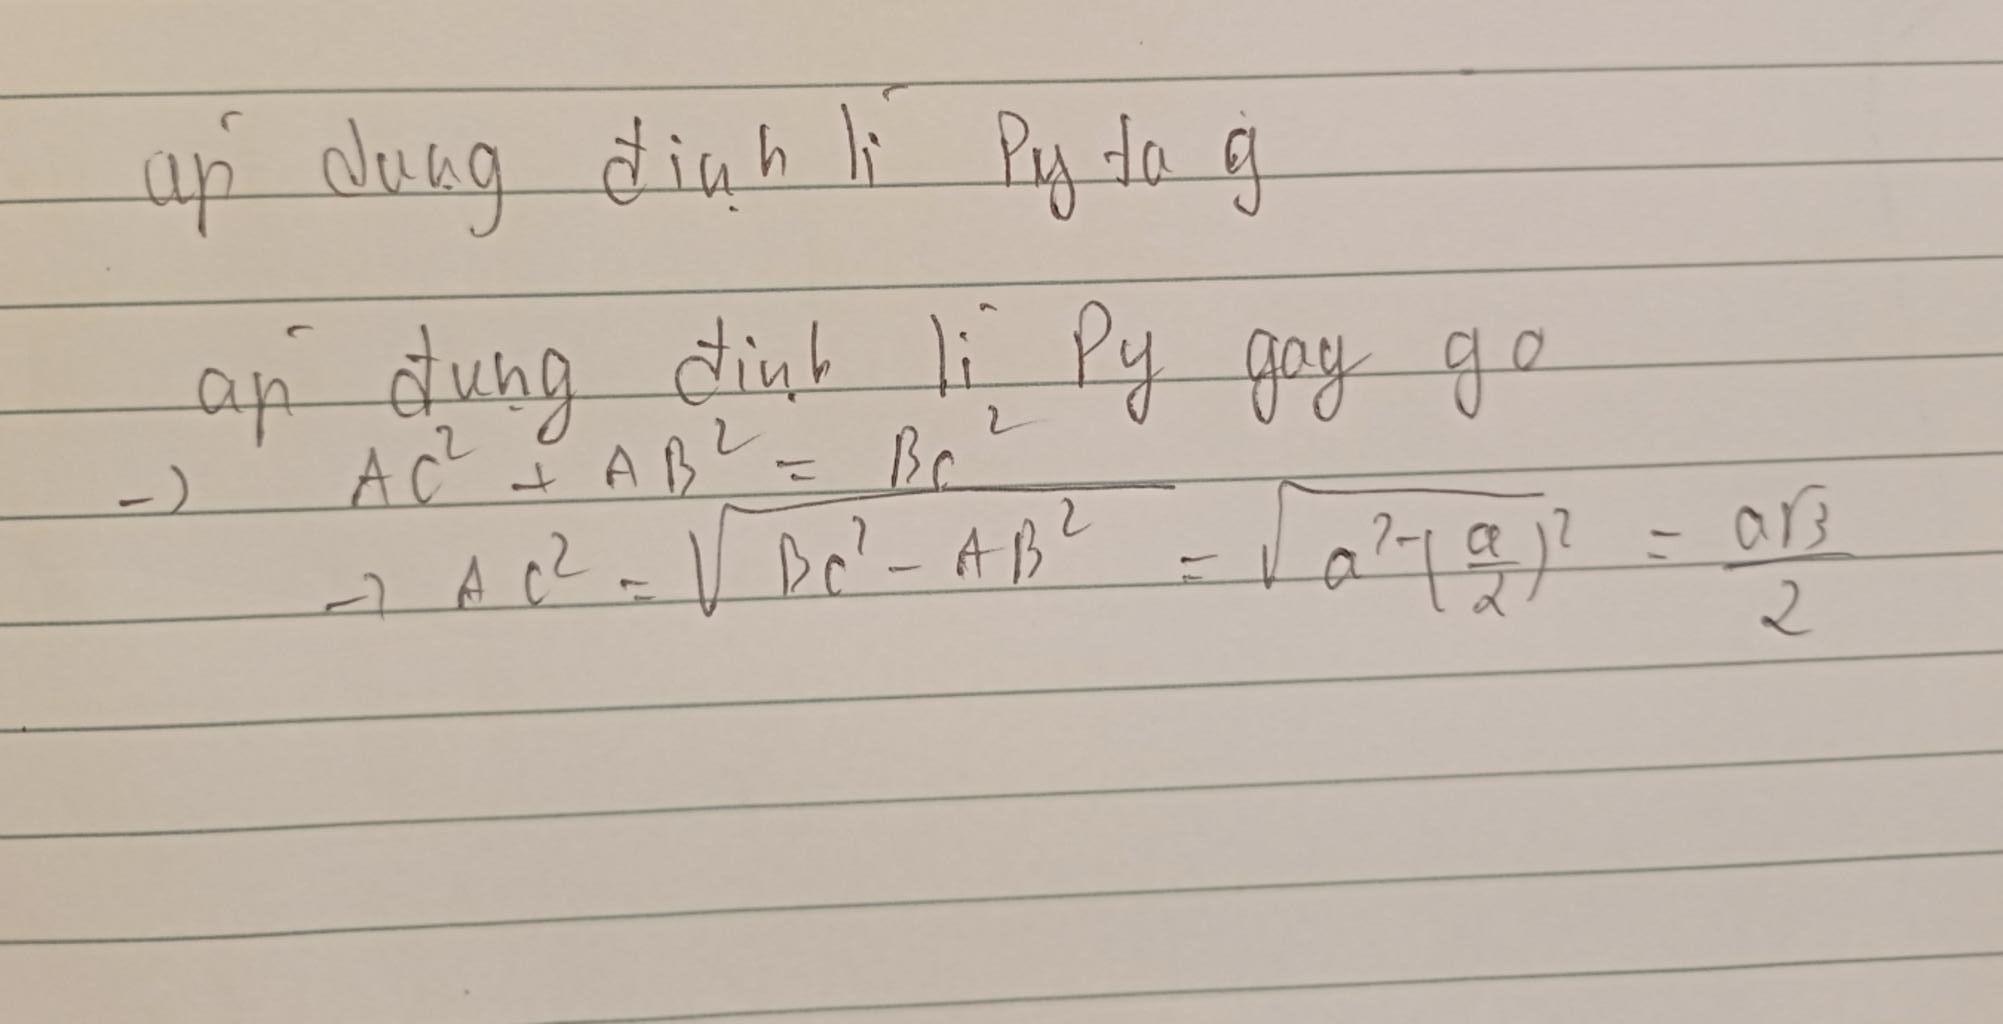 áp dung định lí Py ta g
áp đụng định lí Py gay go
→ AC² + AB² = BC²
→ AC² = √(BC² - AB²) = √(a² - (a/2)²) = a√3/2